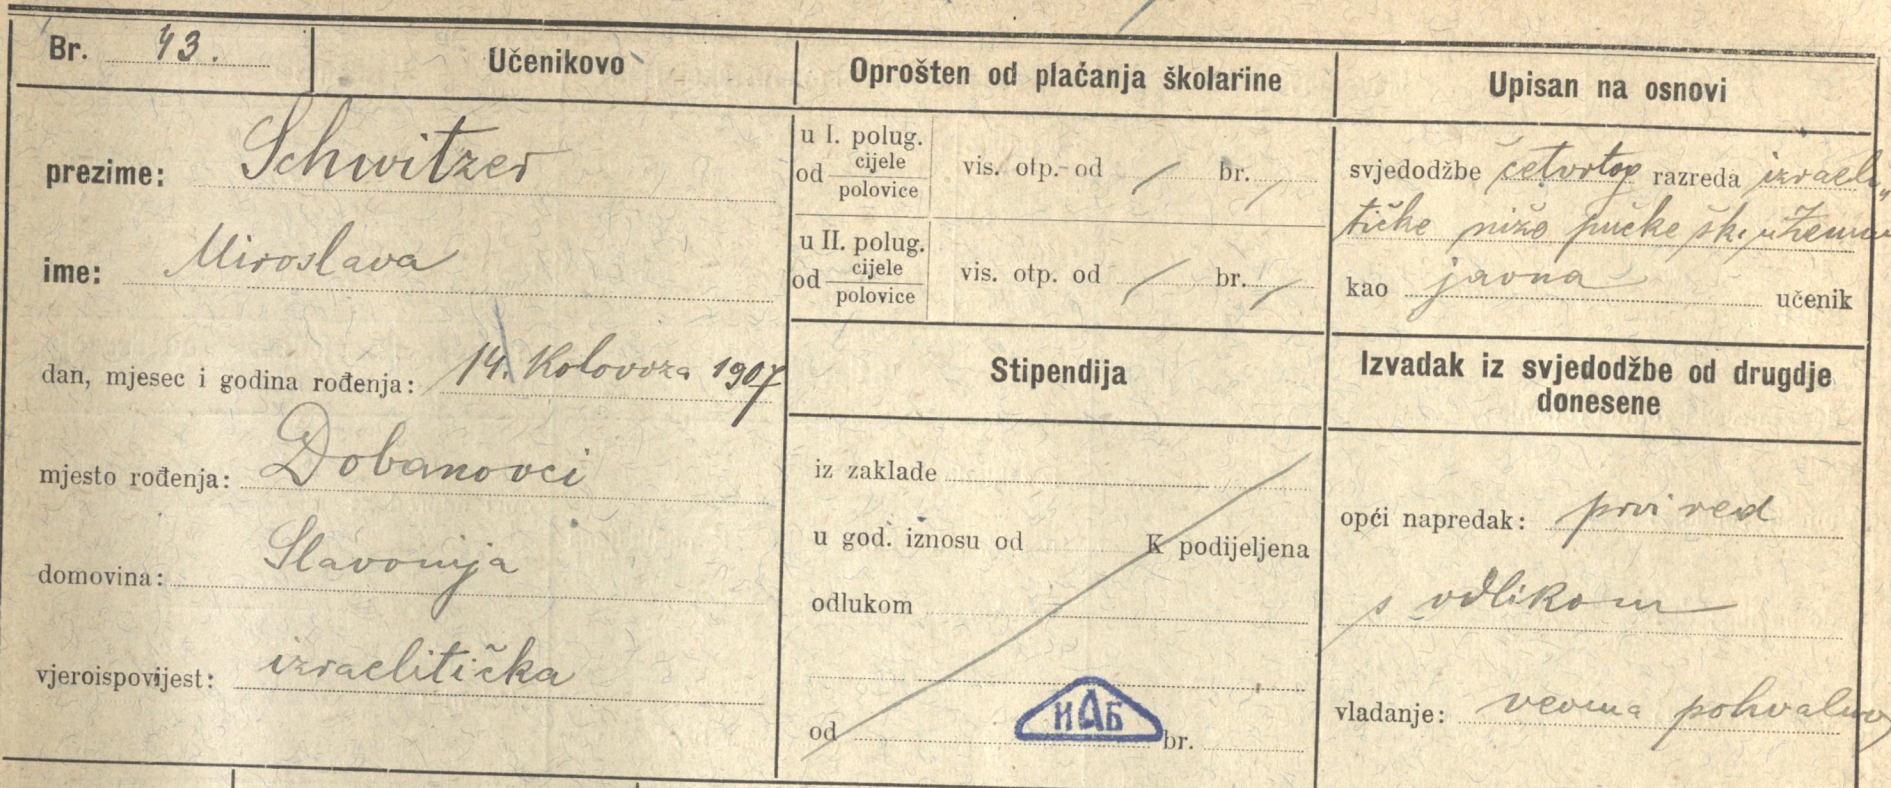 Br. 43.
Učenikovo
prezime: Schwitzer
ime: Miroslava
dan, mjesec i godina rođenja: 14. Kolovoza 1907
mjesto rođenja: Dobanovci
domovina: Slavonija
vjeroispovijest: izraelitička
Oprošten od plaćanja školarine
u I. polug.
od cijele
polovice
vis. otp. od / br. /
u II. polug.
od cijele
polovice
vis. otp. od / br. /
Stipendija
iz zaklade
u god. iznosu od K podijeljena
odlukom
od br.
ИАБ
Upisan na osnovi
svjedodžbe četvrtog razreda izraeli„
tičke niže pučke šk. u Zemunu
kao javna učenik
Izvadak iz svjedodžbe od drugdje
donesene
opći napredak: prvi red
s odlikom
vladanje: veoma pohvalno